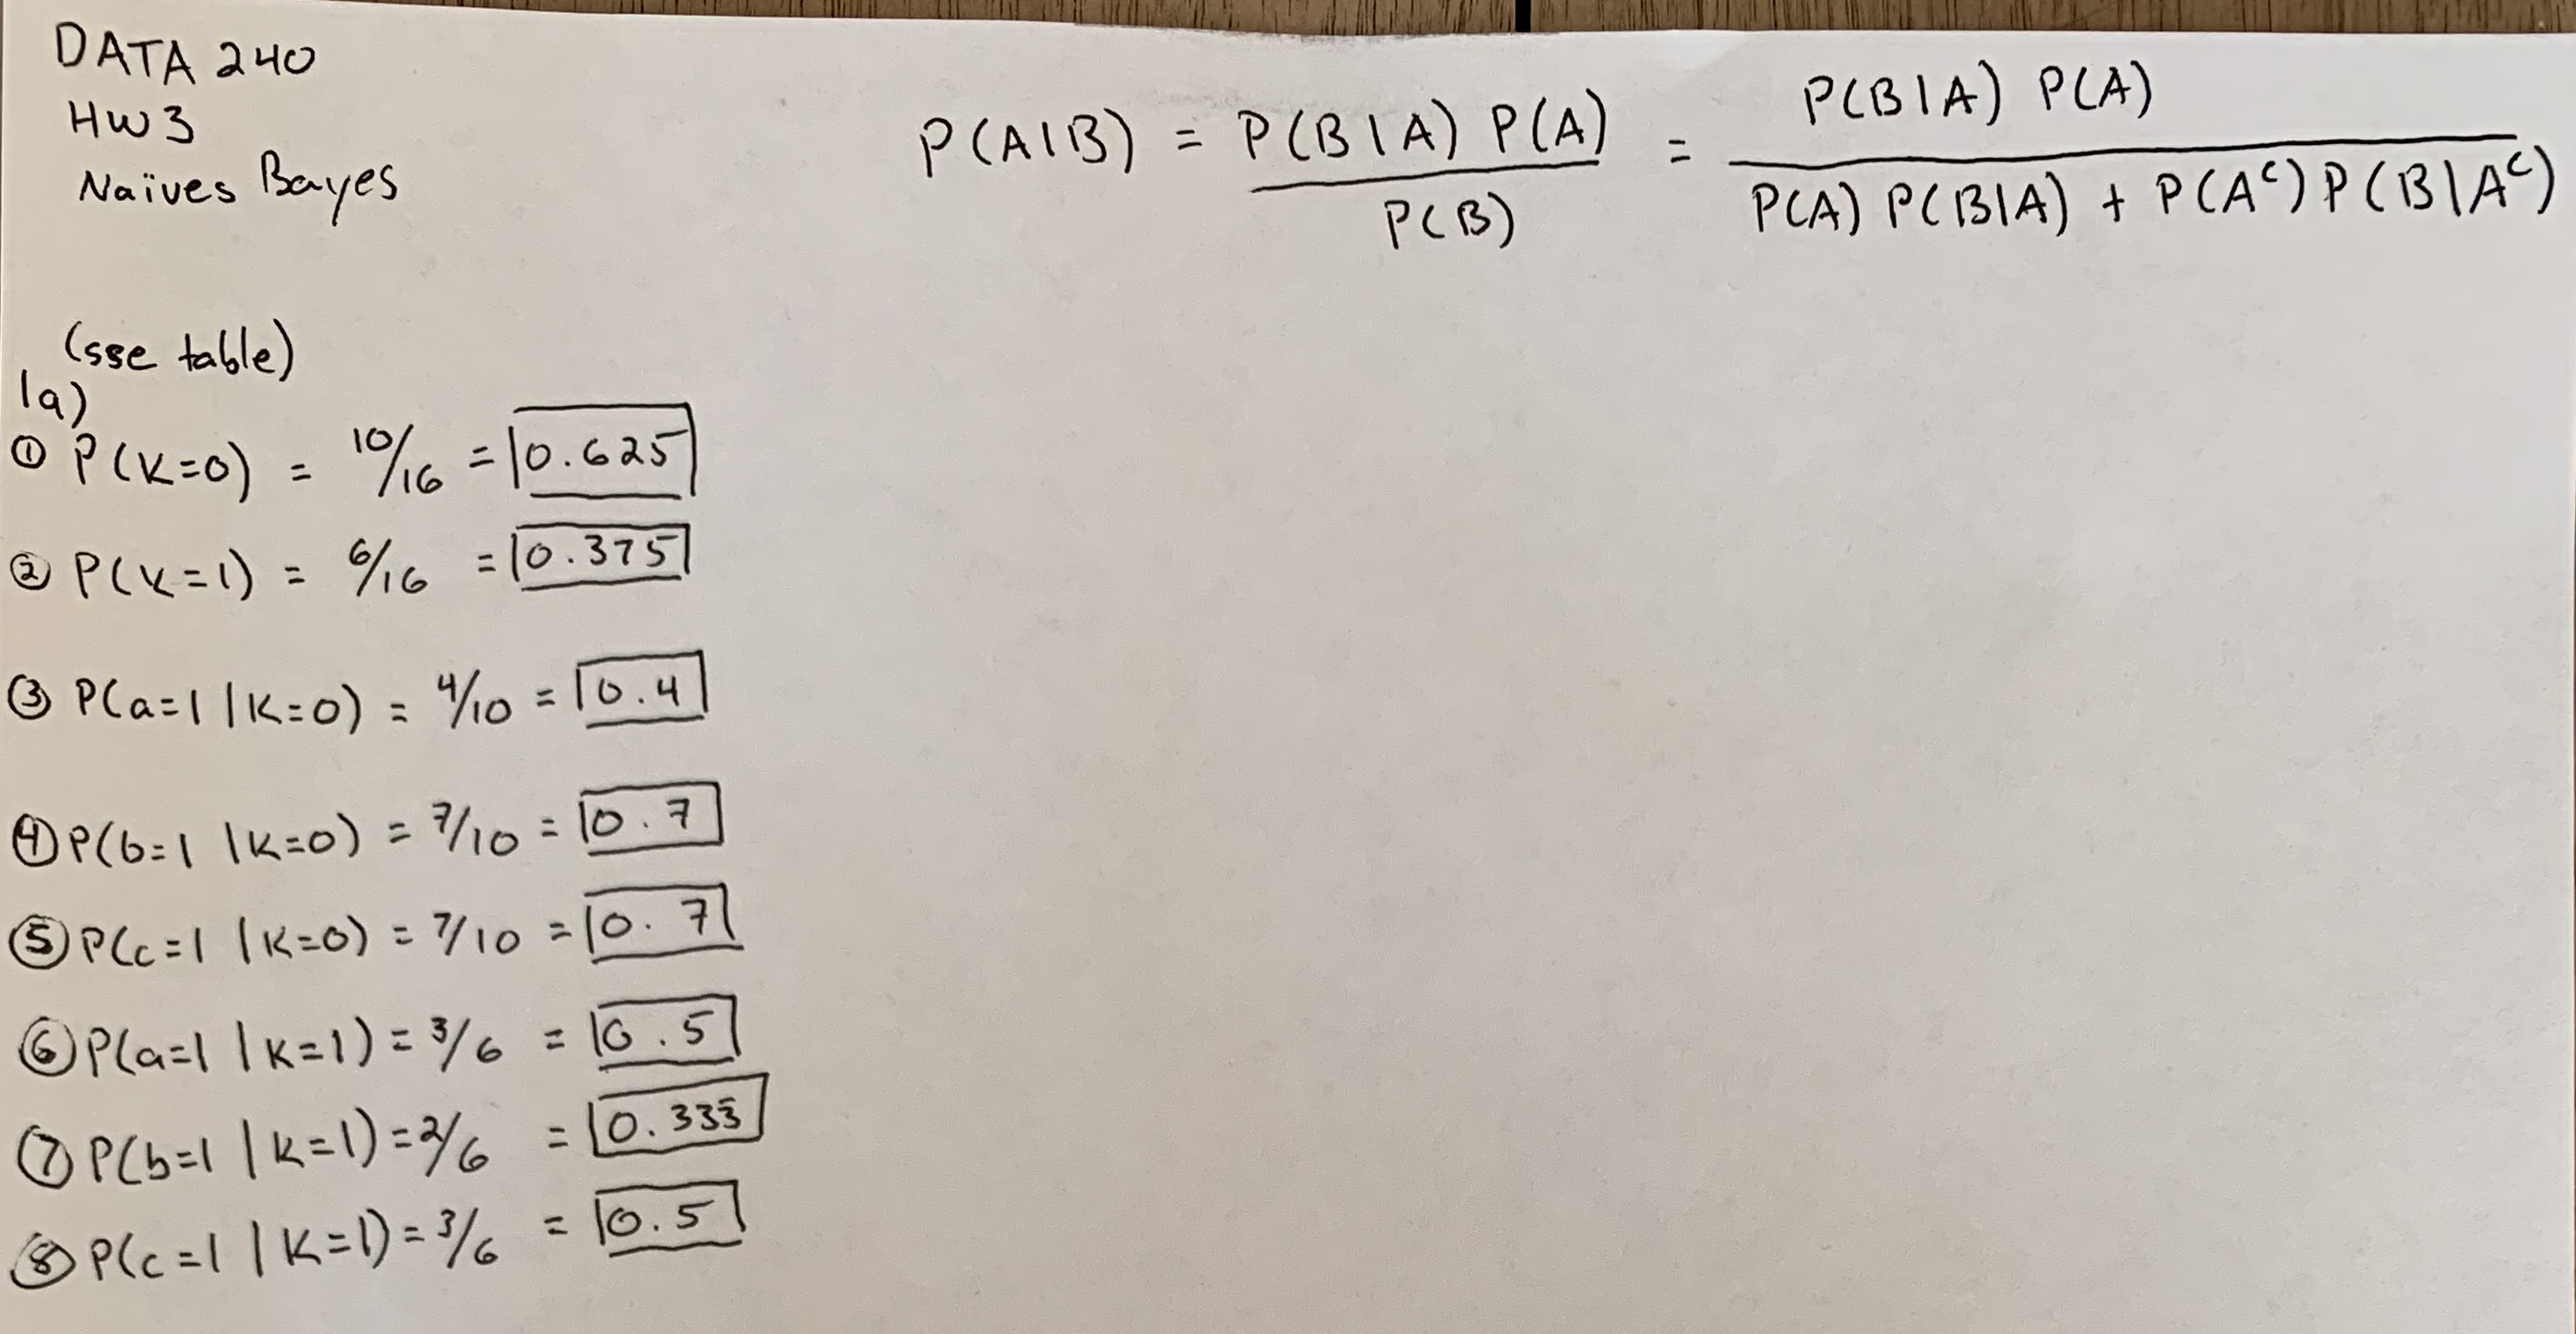 DATA 240
HW3
Naïves Bayes
P(A|B) = P(B|A) P(A) / P(B) = P(B|A) P(A) / P(A) P(B|A) + P(Aᶜ) P(B|Aᶜ)
(sse table)
1a)
① P(K=0) = 10/16 = 0.625
② P(K=1) = 6/16 = 0.375
③ P(a=1 | K=0) = 4/10 = 0.4
④ P(b=1 | K=0) = 7/10 = 0.7
⑤ P(c=1 | K=0) = 7/10 = 0.7
⑥ P(a=1 | K=1) = 3/6 = 0.5
⑦ P(b=1 | K=1) = 2/6 = 0.333
⑧ P(c=1 | K=1) = 3/6 = 0.5